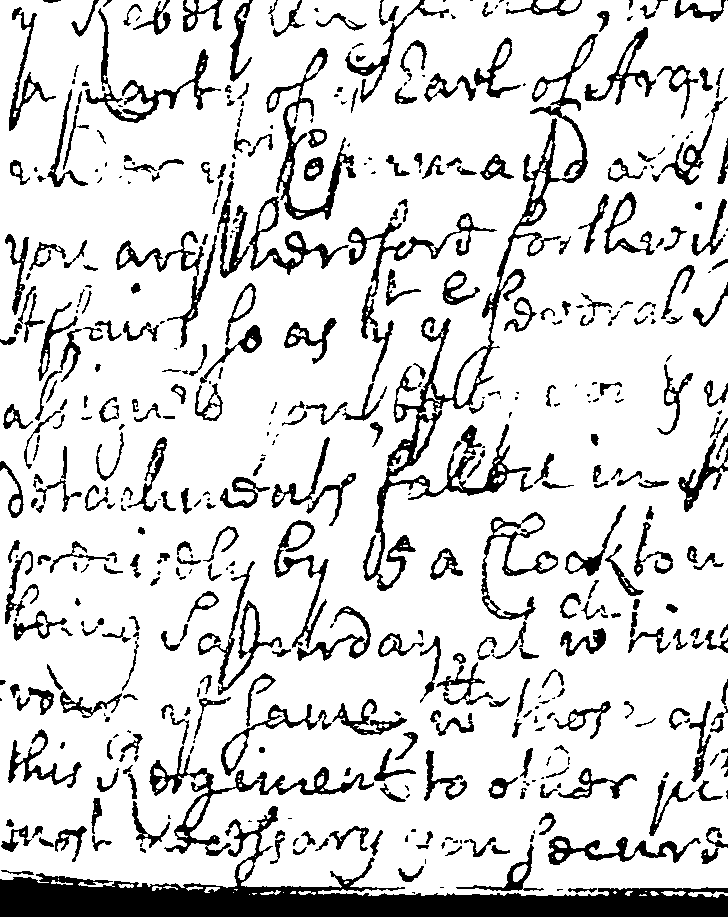 yᵉ Rebels in Glenco, wh
a party of yᵉ Earl of Argy
under yoʳ Command are
you are therefore forthwit
Affairs, so as yᵗ yᵉ severall
assign'd you, be by you & y
detachments fallen in
precisely by 5 a Clock to m
being Saturday, at wᶜʰ time
vour yᵉ same, wᵗʰ those ap
this Regiment to other pl
most necessary you secure